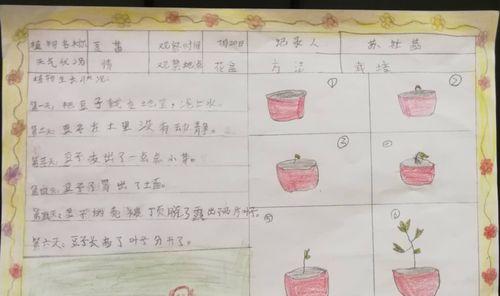 植物名称 豆苗 观察时间 记录人 苏
天气状况 晴 观察地点 花盆 方法 栽培
植物生长状况:
第一天,把豆子种在地里,浇上水。
第二天:豆子在土里没有动静。
第三天,豆子发出了一点点小芽。
第四天:豆子冒出了土面。
第五天:豆子的壳被顶脱了露出两片叶。
第六天:豆子长高了叶子分开了。
①
②
③
④
⑤
⑥